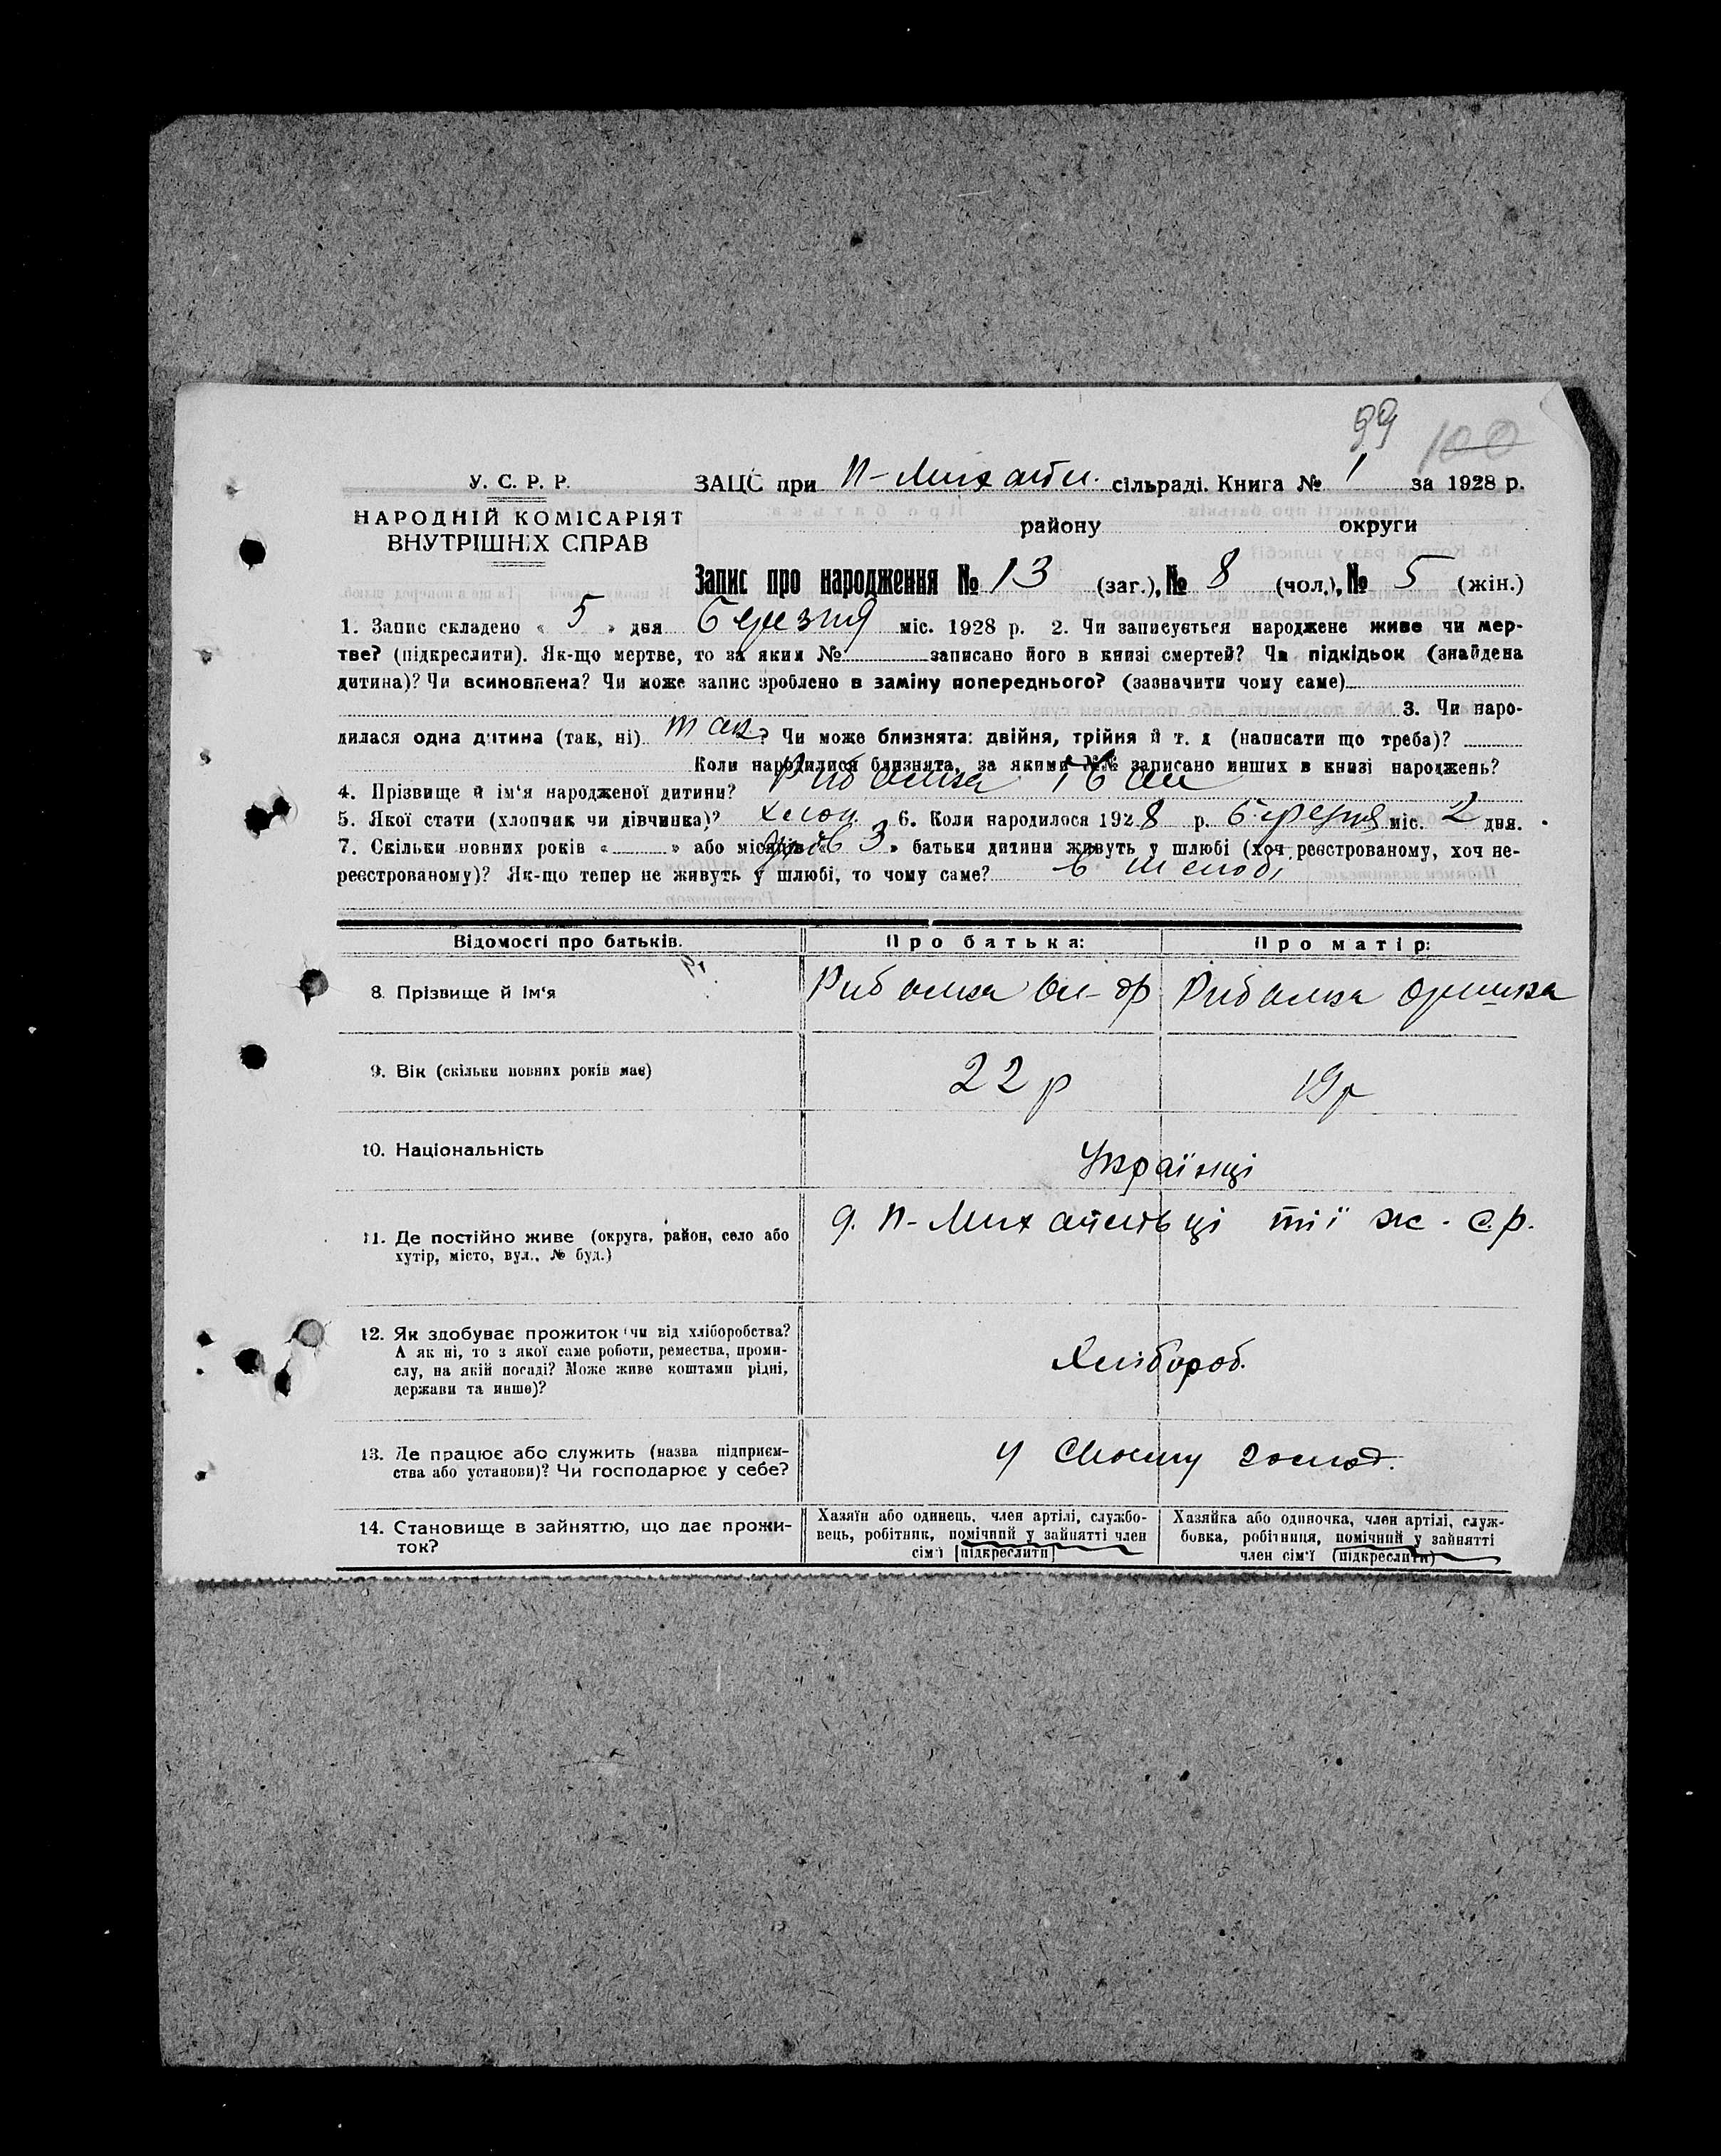 99 100
У. С. Р. Р.
НАРОДНІЙ КОМІСАРІЯТ
ВНУТРІШНІХ СПРАВ
ЗАЦС при П-Михайл. сільраді. Книга № 1 за 1928 р.
району округи
Запис про народження № 13 (заг.), № 8 (чол.), № 5 (жін.)
1. Запис складено « 5 » дня березня міс. 1928 р. 2. Чи записується народжене живе чи мер-
тве? (підкреслити). Як-що мертве, то за яким № записано його в книзі смертей? Чи підкідьок (знайдена
дитина)? Чи всиновлена? Чи може запис зроблено в заміну попереднього? (зазначити чому саме)
3. Чи наро-
дилася одна дитина (так, ні) так ? Чи може близнята: двійня, трійня й т. д (написати що треба)?
Коли народилися близнята, за якими №№ записано инших в книзі народжень?
4. Прізвище й ім'я народженої дитини? Рибалка Іван
5. Якої статі (хлопчик чи дівчинка)? хлоп. 6. Коли народилося 1928 р. березня міс. 2 дня.
7. Скільки повних років « » або місяців « 3 » батьки дитини живуть у шлюбі (хоч реєстрованому, хоч не-
реєстрованому)? Як-що тепер не живуть у шлюбі, то чому саме? в шлюбі
Відомості про батьків. Про батька: Про матір:
8. Прізвище й ім'я Рибалка Ол-др Рибалка Оришка
9. Вік (скільки повних років має) 22 р 19 р
10. Національність Українці
11. Де постійно живе (округа, район, село або
хутір, місто, вул., № буд.)
д. П-Михайлівці тії ж - с.р.
12. Як здобуває прожиток (чи від хліборобства?
А як ні, то з якої саме роботи, ремества, проми-
слу, на якій посаді? Може живе коштами рідні,
держави та инше)?
Хлібороб.
13. Де працює або служить (назва підприєм-
ства або установи)? Чи господарює у себе?
У своєму господ.
14. Становище в зайняттю, що дає прожи-
ток?
Хазяїн або одинець, член артілі, службо-
вець, робітник, помічний у зайнятті член
сім'ї [підкреслити]
Хазяйка або одиночка, член артілі, служ-
бовка, робітниця, помічний у зайнятті
член сім'ї (підкреслити)